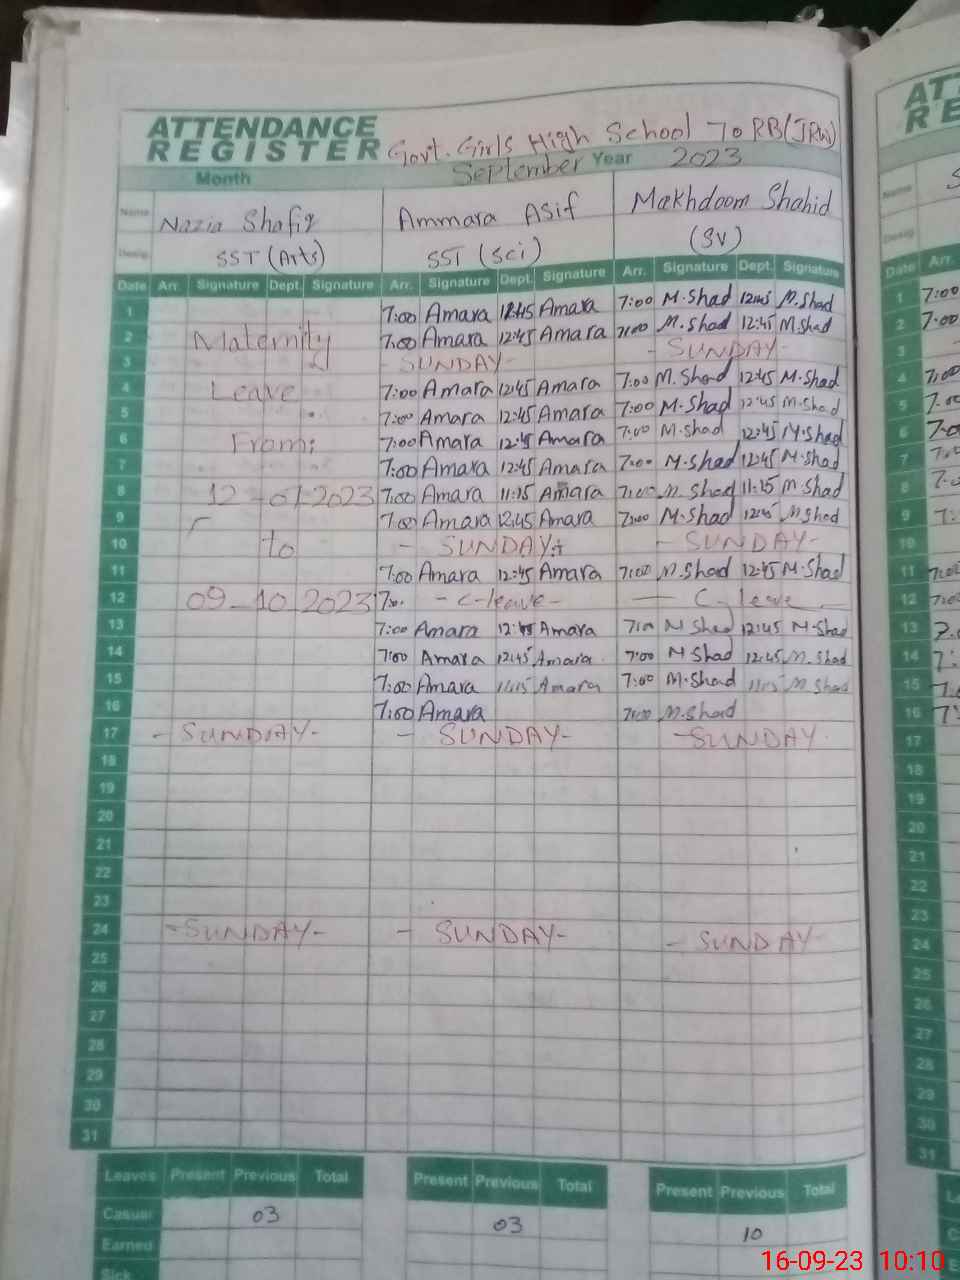 ATTENDANCE REGISTER Govt. Girls High School 70 RB (JRW)
Month September Year 2023
Name Nazia Shafiq Ammara Asif Makhdoom Shahid
Desig. SST (Arts) SST (Sci) (SV)
Date Arr. Signature Dept. Signature Arr. Signature Dept. Signature Arr. Signature Dept. Signature
1 7:00 Amara 12:45 Amara 7:00 M.Shad 12:45 M.Shad
2 Maternity 7:00 Amara 12:45 Amara 7:00 M.Shad 12:45 M.Shad
3 - SUNDAY - - SUNDAY -
4 Leave 7:00 Amara 12:45 Amara 7:00 M.Shad 12:45 M.Shad
5 7:00 Amara 12:45 Amara 7:00 M.Shad 12:45 M.Shad
6 From: 7:00 Amara 12:45 Amara 7:00 M.Shad 12:45 M.Shad
7 7:00 Amara 12:45 Amara 7:00 M.Shad 12:45 M.Shad
8 12-07-2023 7:00 Amara 11:15 Amara 7:00 M.Shad 11:15 M.Shad
9 7:00 Amara 12:45 Amara 7:00 M.Shad 12:45 M.Shad
10 to - SUNDAY - - SUNDAY -
11 7:00 Amara 12:45 Amara 7:00 M.Shad 12:45 M.Shad
12 09-10 2023 7:0. - C-leave - - C-leave -
13 7:00 Amara 12:45 Amara 7:00 M Shad 12:45 M-Shad
14 7:00 Amara 12:45 Amara 7:00 M Shad 12:45 M.Shad
15 7:00 Amara 11:15 Amara 7:00 M.Shad 11:15 M Shad
16 7:00 Amara 7:00 M.Shad
17 - SUNDAY - - SUNDAY - - SUNDAY
18
19
20
21
22
23
24 - SUNDAY - - SUNDAY - - SUNDAY -
25
26
27
28
29
30
31
Leaves Present Previous Total Present Previous Total Present Previous Total
Casual 03 03 10
Earned
Sick
16-09-23 10:10